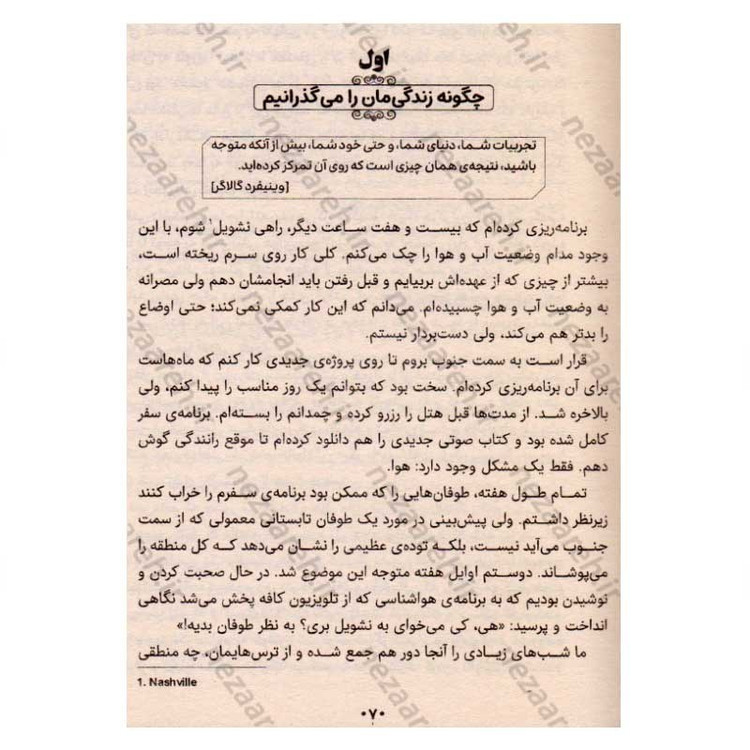 اول
چگونه زندگی‌مان را می‌گذرانیم
تجربیات شما، دنیای شما، و حتی خود شما، بیش از آنکه متوجه
باشید، نتیجه‌ی همان چیزی است که روی آن تمرکز کرده‌اید.
[وینیفرد گالاگر]
برنامه‌ریزی کرده‌ام که بیست و هفت ساعت دیگر، راهی نشویل۱ شوم، با این
وجود مدام وضعیت آب و هوا را چک می‌کنم. کلی کار روی سرم ریخته است،
بیشتر از چیزی که از عهده‌اش بربیایم و قبل رفتن باید انجامشان دهم ولی مصرانه
به وضعیت آب و هوا چسبیده‌ام. می‌دانم که این کار کمکی نمی‌کند؛ حتی اوضاع
را بدتر هم می‌کند، ولی دست‌بردار نیستم.
قرار است به سمت جنوب بروم تا روی پروژه‌ی جدیدی کار کنم که ماه‌هاست
برای آن برنامه‌ریزی کرده‌ام. سخت بود که بتوانم یک روز مناسب را پیدا کنم، ولی
بالاخره شد. از مدت‌ها قبل هتل را رزرو کرده و چمدانم را بسته‌ام. برنامه‌ی سفر
کامل شده بود و کتاب صوتی جدیدی را هم دانلود کرده‌ام تا موقع رانندگی گوش
دهم. فقط یک مشکل وجود دارد: هوا.
تمام طول هفته، طوفان‌هایی را که ممکن بود برنامه‌ی سفرم را خراب کنند
زیرنظر داشتم. ولی پیش‌بینی در مورد یک طوفان تابستانی معمولی که از سمت
جنوب می‌آید نیست، بلکه توده‌ی عظیمی را نشان می‌دهد که کل منطقه را
می‌پوشاند. دوستم اوایل هفته متوجه این موضوع شد. در حال صحبت کردن و
نوشیدن بودیم که به برنامه‌ی هواشناسی که از تلویزیون کافه پخش می‌شد نگاهی
انداخت و پرسید: «هی، کی می‌خوای به نشویل بری؟ به نظر طوفان بدیه!»
ما شب‌های زیادی را آنجا دور هم جمع شده و از ترس‌هایمان، چه منطقی
1. Nashville
۰۷۰
nezaareh.ir